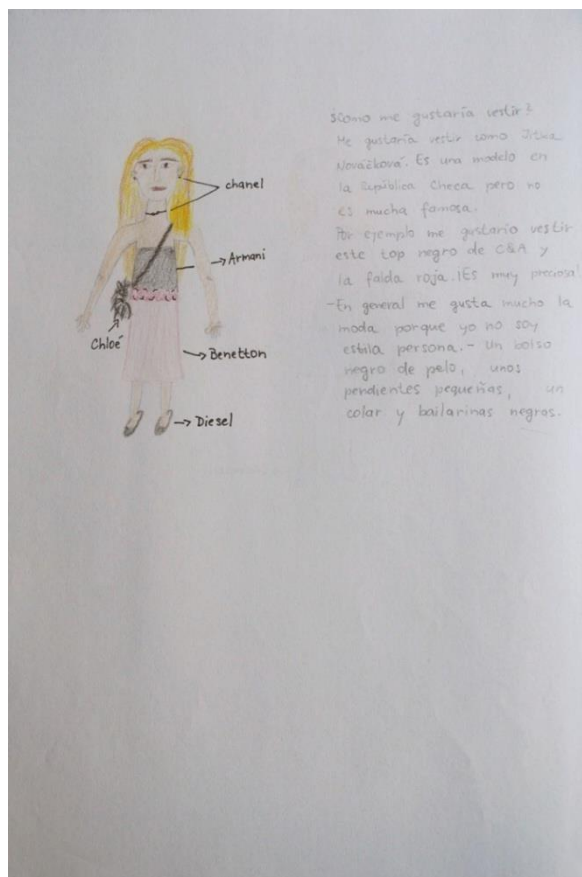 chanel
Armani
Chloé
Benetton
Diesel
¿Como me gustaría vestir?
Me gustaría vestir como Jitka
Nováčková. Es una modelo en
la República Checa pero no
es mucha famosa.
Por ejemplo me gustaría vestir
este top negro de C&A y
la falda roja. ¡Es muy preciosa!
-En general me gusta mucho la
moda porque yo no soy
estila persona. - Un bolso
negro de pelo, unos
pendientes pequeñas, un
colar y bailarinas negros.